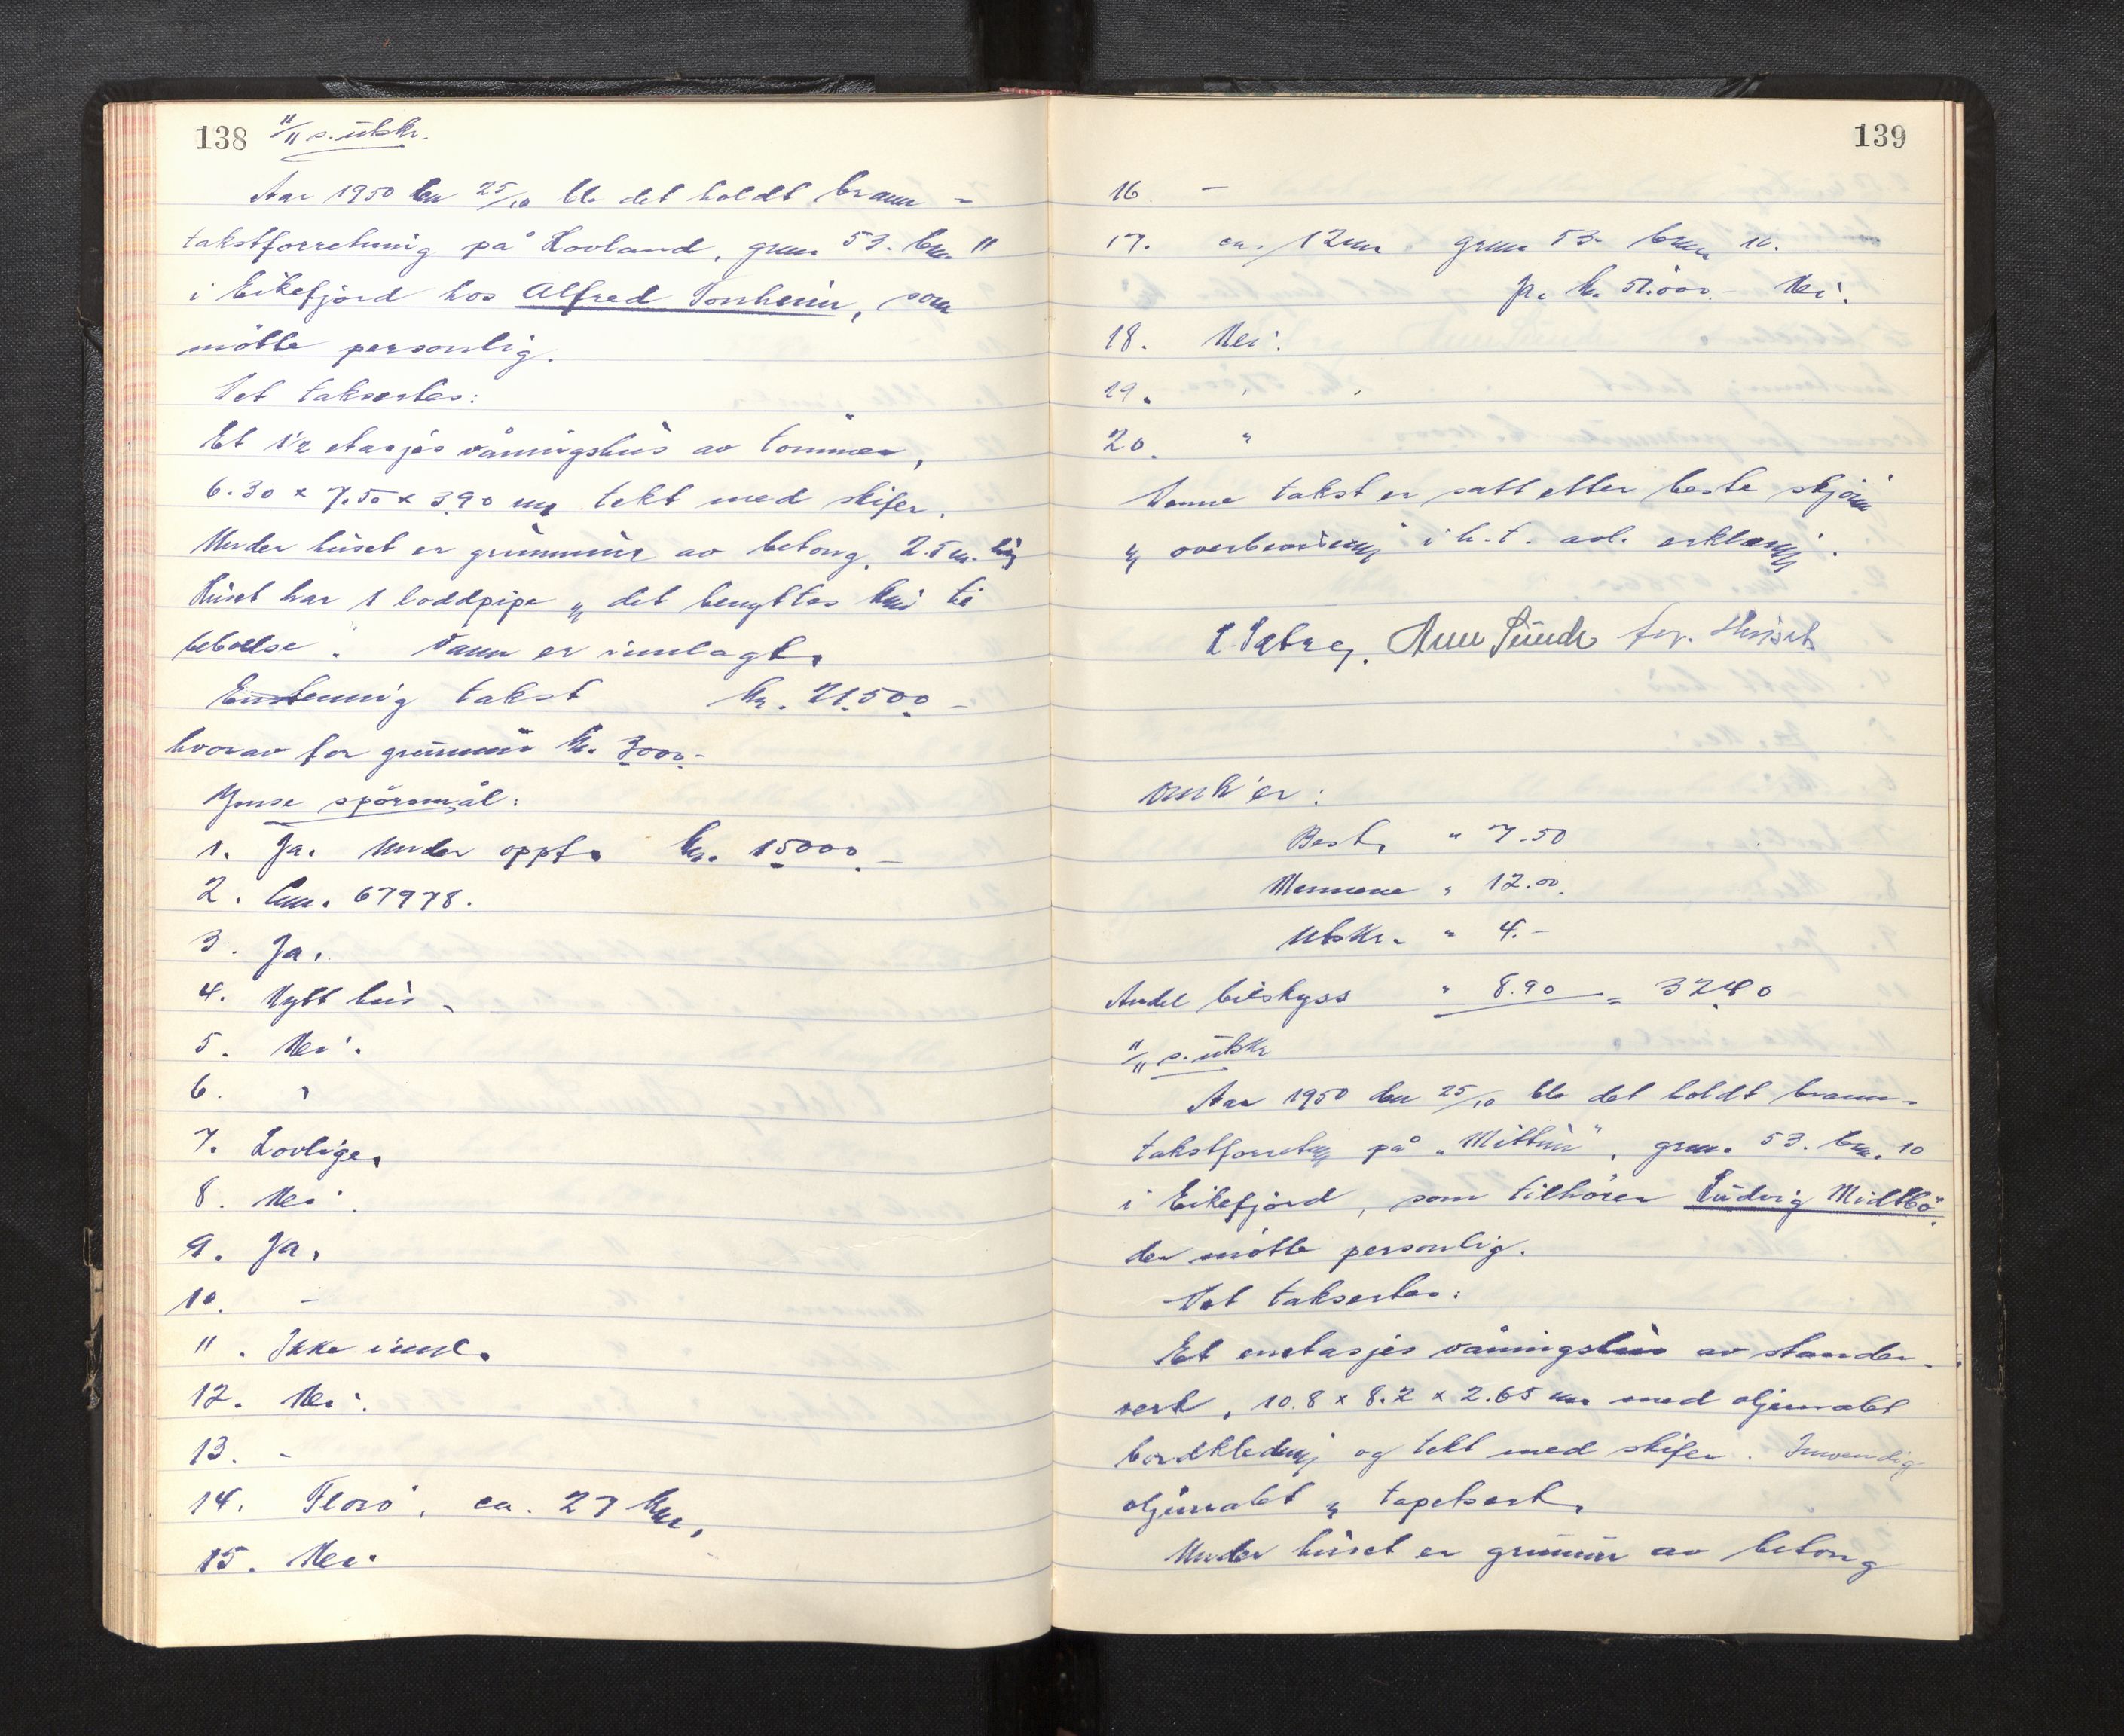 138 11/11 s. utskr.
Aar 1950 den 25/10 ble det holdt brann-
takstforretning på Hovland, gnr. 53. bnr. 11
i Eikefjord hos Alfred Sonheim, som
møtte personlig.
Det taksertes:
Et 1½ etasjes våningshus av tømmer,
6.30 x 7.50 x 3.90 m, tekt med skifer.
Under huset er grunnmur av betong, 2.5 m. høg
Huset har 1 loddpipe og det benyttes kun til
beboelse. Vann er innlagt.
Enstemmig takst kr. 21.500 -
hvorav for grunnmur kr. 3000.-
Ymse spörsmål:
1. Ja. Under oppf. kr. 15000.-
2. Lnr. 67978.
3. Ja.
4. Nytt hus.
5. Nei.
6. "
7. Lovlige.
8. Nei.
9. Ja.
10. -
11. Ikke innl.
12. Nei.
13. -
14. Florö, ca. 27 km.
15. Nei.
139
16. -
17. ca. 12 m gnr 53. bnr 10.
Ja. kr. 51.000.- Nei.
18. Nei.
19. "
20. "
Denne takst er satt etter beste skjønn
og overbevisning i h. t. avl. erklæring.
Arne Sunde
Omk'er:
Best. " 7.50
Mennene " 12.00.
Utskr. " 4.-
Andel bilskyss " 8.90 = 32.40
11/11 s. utskr
Aar 1950 den 25/10 ble det holdt brann-
takstforretning på "Mittun", gnr. 53. bnr. 10
i Eikefjord, som tilhører Ludvig Midtbö,
der møtte personlig.
Det taksertes:
Et enetasjes våningshus av stander-
verk, 10.8 x 8.2 x 2.65 m med oljemalt
bordkledning og tekt med skifer. Innvendig
oljemalt og tapetsert.
Under huset er grunnmur av betong